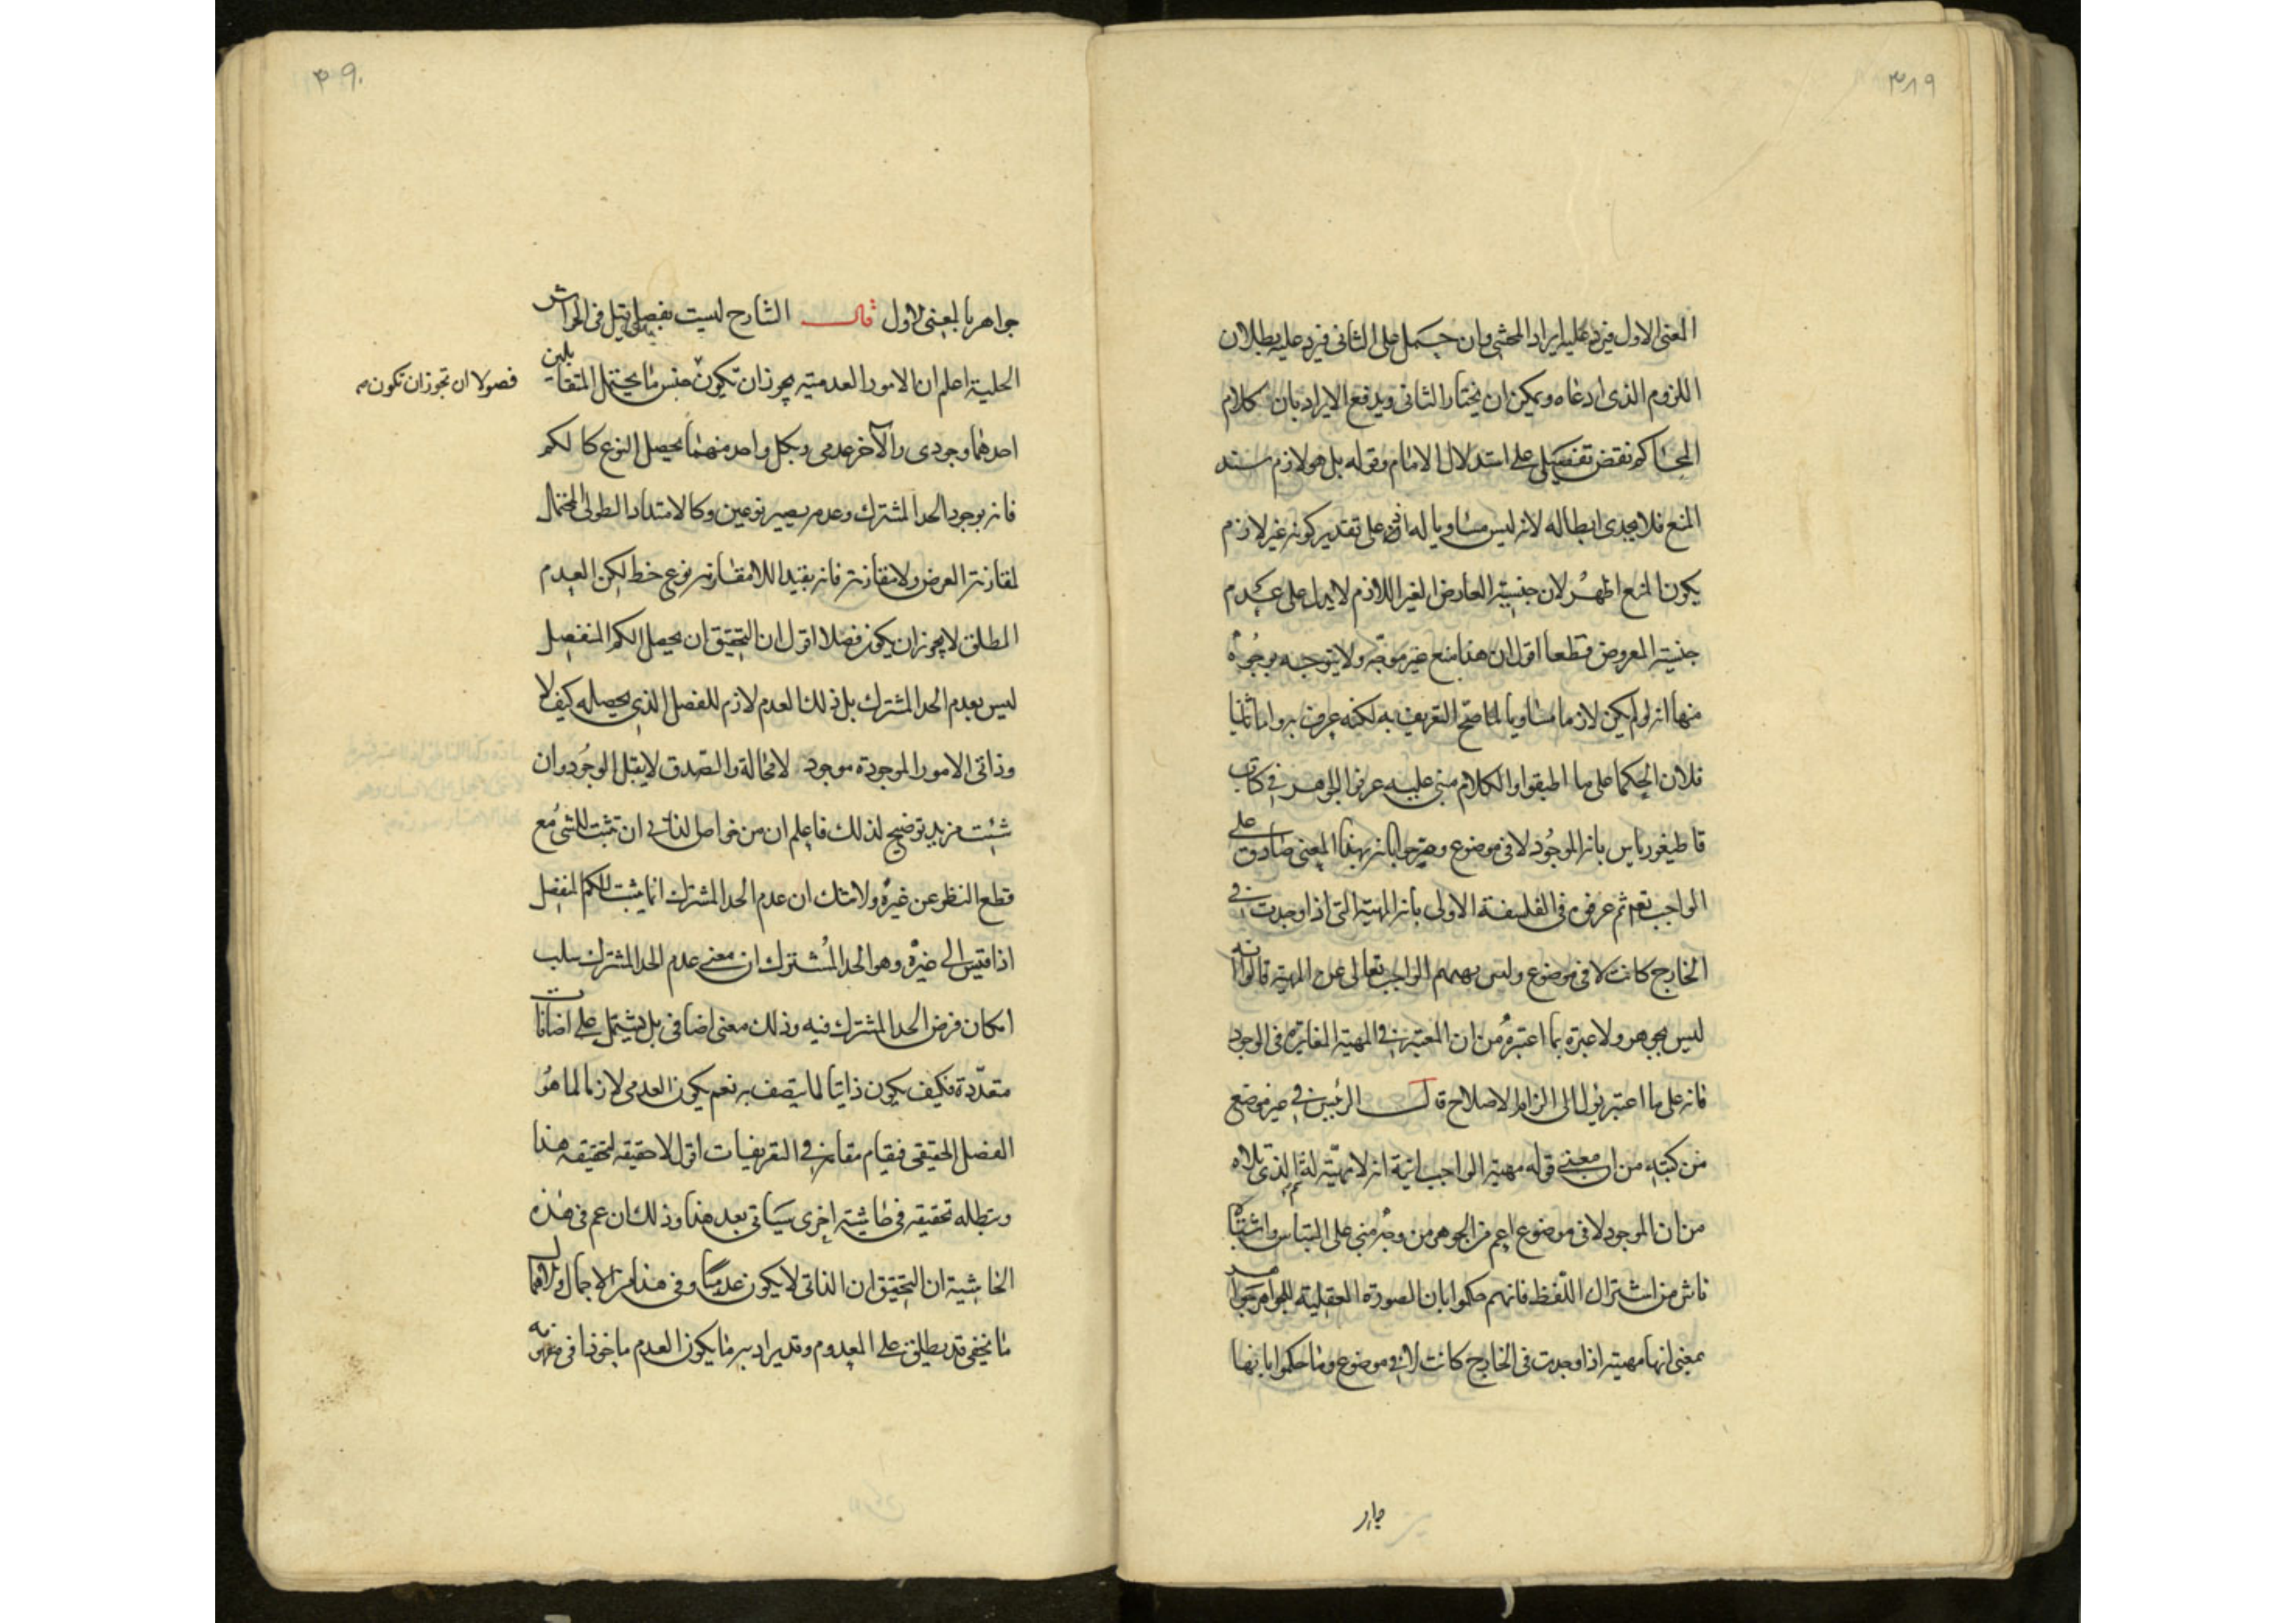 ٣٨٩
المعنى الاول فيرد عليه ايراد المحشي وان حمل على الثاني فيرد عليه بطلان
اللزوم الذى ادعاه ويمكن ان يختار الثانى ويدفع الايراد بان كلام
المحاكم نقض تفصيلى على استدلال الامام وقوله بل هو لازم سند
المنع فلا يجدى ابطاله لانه ليس مساويا له اذ على تقدير كونه غير لازم
يكون المنع اظهر لان جنسية العارض الغير اللازم لا يدل على عدم
جنسية المعروض قطعا اقول ان هذا منع غير موجّه ولا يتوجه بوجوه
منها انه لو لم يكن لازما مساويا لما صحّ التعريف به لكنه عرف به واما ثانيا
فلان الحكما على ما اطبقوا والكلام مبنى عليه عرفوا الجوهر فى كتاب
قاطيغورياس بانه الموجود لا فى موضوع وصرحوا بانه بهذا المعنى صادق على
الواجب تع ثم عرفوه فى الفلسفة الاولى بانه المهية التى اذا وجدت فى
الخارج كانت لا فى موضوع وليس الواجب تعالى عن المهية قالوا انه
ليس بجوهر ولا عبرة بما اعتبروه من ان المعتبر فى المهية المغايرة فى الوجود
فانه على ما اعتبر يؤل الى الزام الاصلاح قال الرئيس فى غير موضع
من كتبه من ان معنى قوله مهية الواجب انية انه لا مهيّة له ثم الذى تلاه
من ان الموجود لا فى موضوع اعم من الجوهر من وجه مبنى على التباس واشتباه
ناش من اشتراك اللّفظ فانهم حكموا بان الصورة العقلية للجواهر جواهر
بمعنى انها مهية اذا وجدت فى الخارج كانت لا فى موضوع وما حكموا بانها
٣٩٠
جواهر بالمعنى الاول قال الشارح ليست بفصل قيل فى الحواشى
الحلية اعلم ان الامور العدمية يجوز ان تكون جنس ما يحتمل المتقابلين
فصولا ان تجوز ان تكون
احدهما وجودى والآخر عدمى وبكل واحد منهما يحصل النوع كالكم
فانه بوجود الحد المشترك وعدمه يصير نوعين وكالامتداد الطولى المحتمل
لمقارنة العرض ولا مقارنته فانه بقيد اللامقارنه نوع خط لكن العدم
المطلق لا يجوز ان يكون فصلا اقول ان التحقيق ان يحصل الكم المنفصل
ليس بعدم الحد المشترك بل ذلك العدم لازم للفصل الذى يحصله كيف لا
وذاتى الامور الموجودة موجود لا محالة والعدم لا يقبل الوجود وان
شئت مزيد توضيح لذلك فاعلم ان من خواص الذاتى ان تثبت للشى مع
قطع النظر عن غيره ولا شك ان عدم الحد المشترك انما يثبت للكم المنفصل
اذا قيس الى غيره وهو الحد المشترك ان معنى عدم الحد المشترك سلب
امكان فرض الحد المشترك فيه وذلك معنى اضافى بل يشتمل على اضافات
متعدّدة فكيف يكون ذاتيا لما يتصف به نعم يكون العدمى لازما لما هو
الفصل الحقيقى فيقام مقامه فى التعريفات اقول لا حقيقه لتحقيقه هذا
ويبطله تحقيقه فى حاشية اخرى سيأتى بعد هذا وذلك ان عم فى هذه
الحاشية ان التحقيق ان الذاتى لا يكون عدميّا وفى هذا من الاجمال
ما يخفى قد يطلق على المعدوم وقد يراد به ما يكون العدم ماخوذا فى مفهومه
جوار